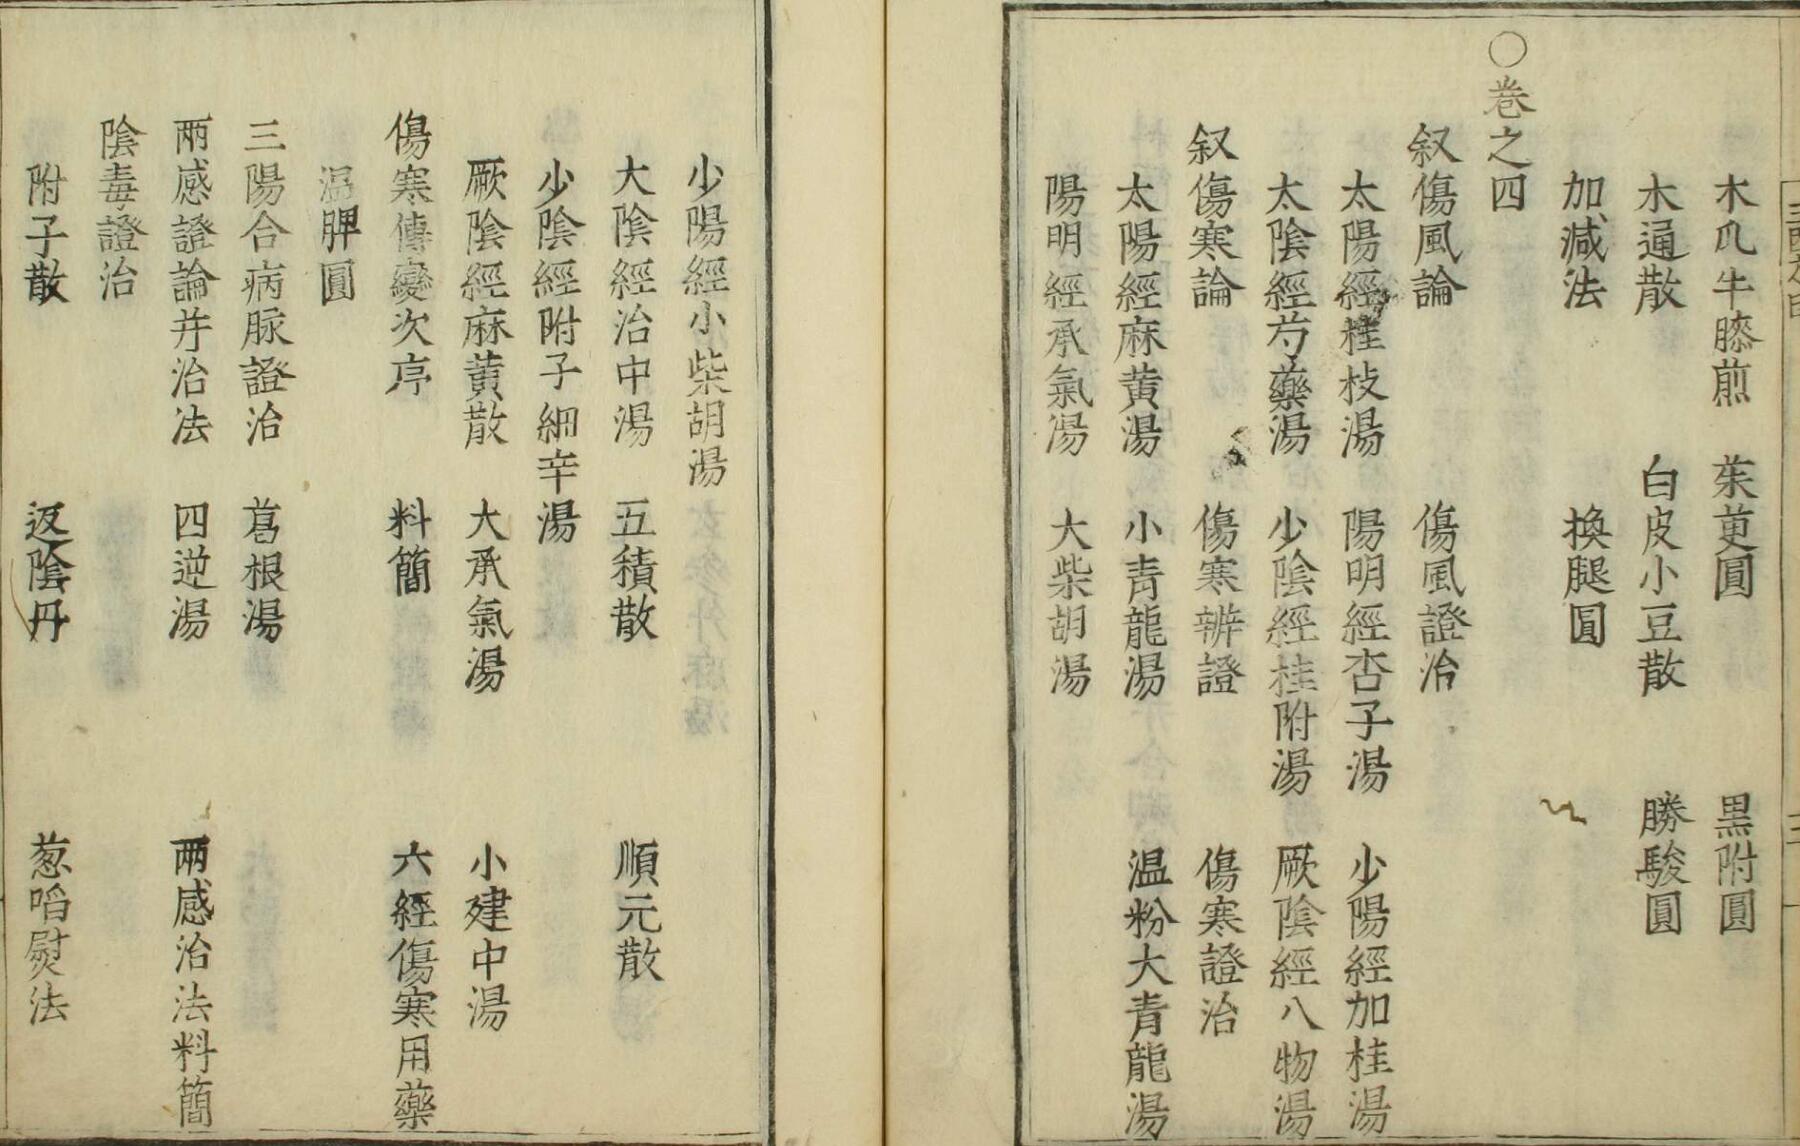 木瓜牛膝煎　茱萸圓　黒附圓
木通散　白皮小豆散　勝駿圓
加減法　換腿圓
〇卷之四
叙傷風論　傷風證治
太陽經桂枝湯　陽明經杏子湯　少陽經加桂湯
太陰經芍藥湯　少陰經桂附湯　厥陰經八物湯
叙傷寒論　傷寒辨證　傷寒證治
太陽經麻黄湯　小青龍湯　温粉大青龍湯
陽明經承氣湯　大柴胡湯
少陽經小柴胡湯
大陰經治中湯　五積散　順元散
少陰經附子細辛湯
厥陰經麻黄散　大承氣湯　小建中湯
傷寒傳變次序　料簡　六經傷寒用藥
温脾圓
三陽合病脉證治　葛根湯
兩感證論并治法　四逆湯　兩感治法料簡
陰毒證治
附子散　返陰丹　葱啗熨法